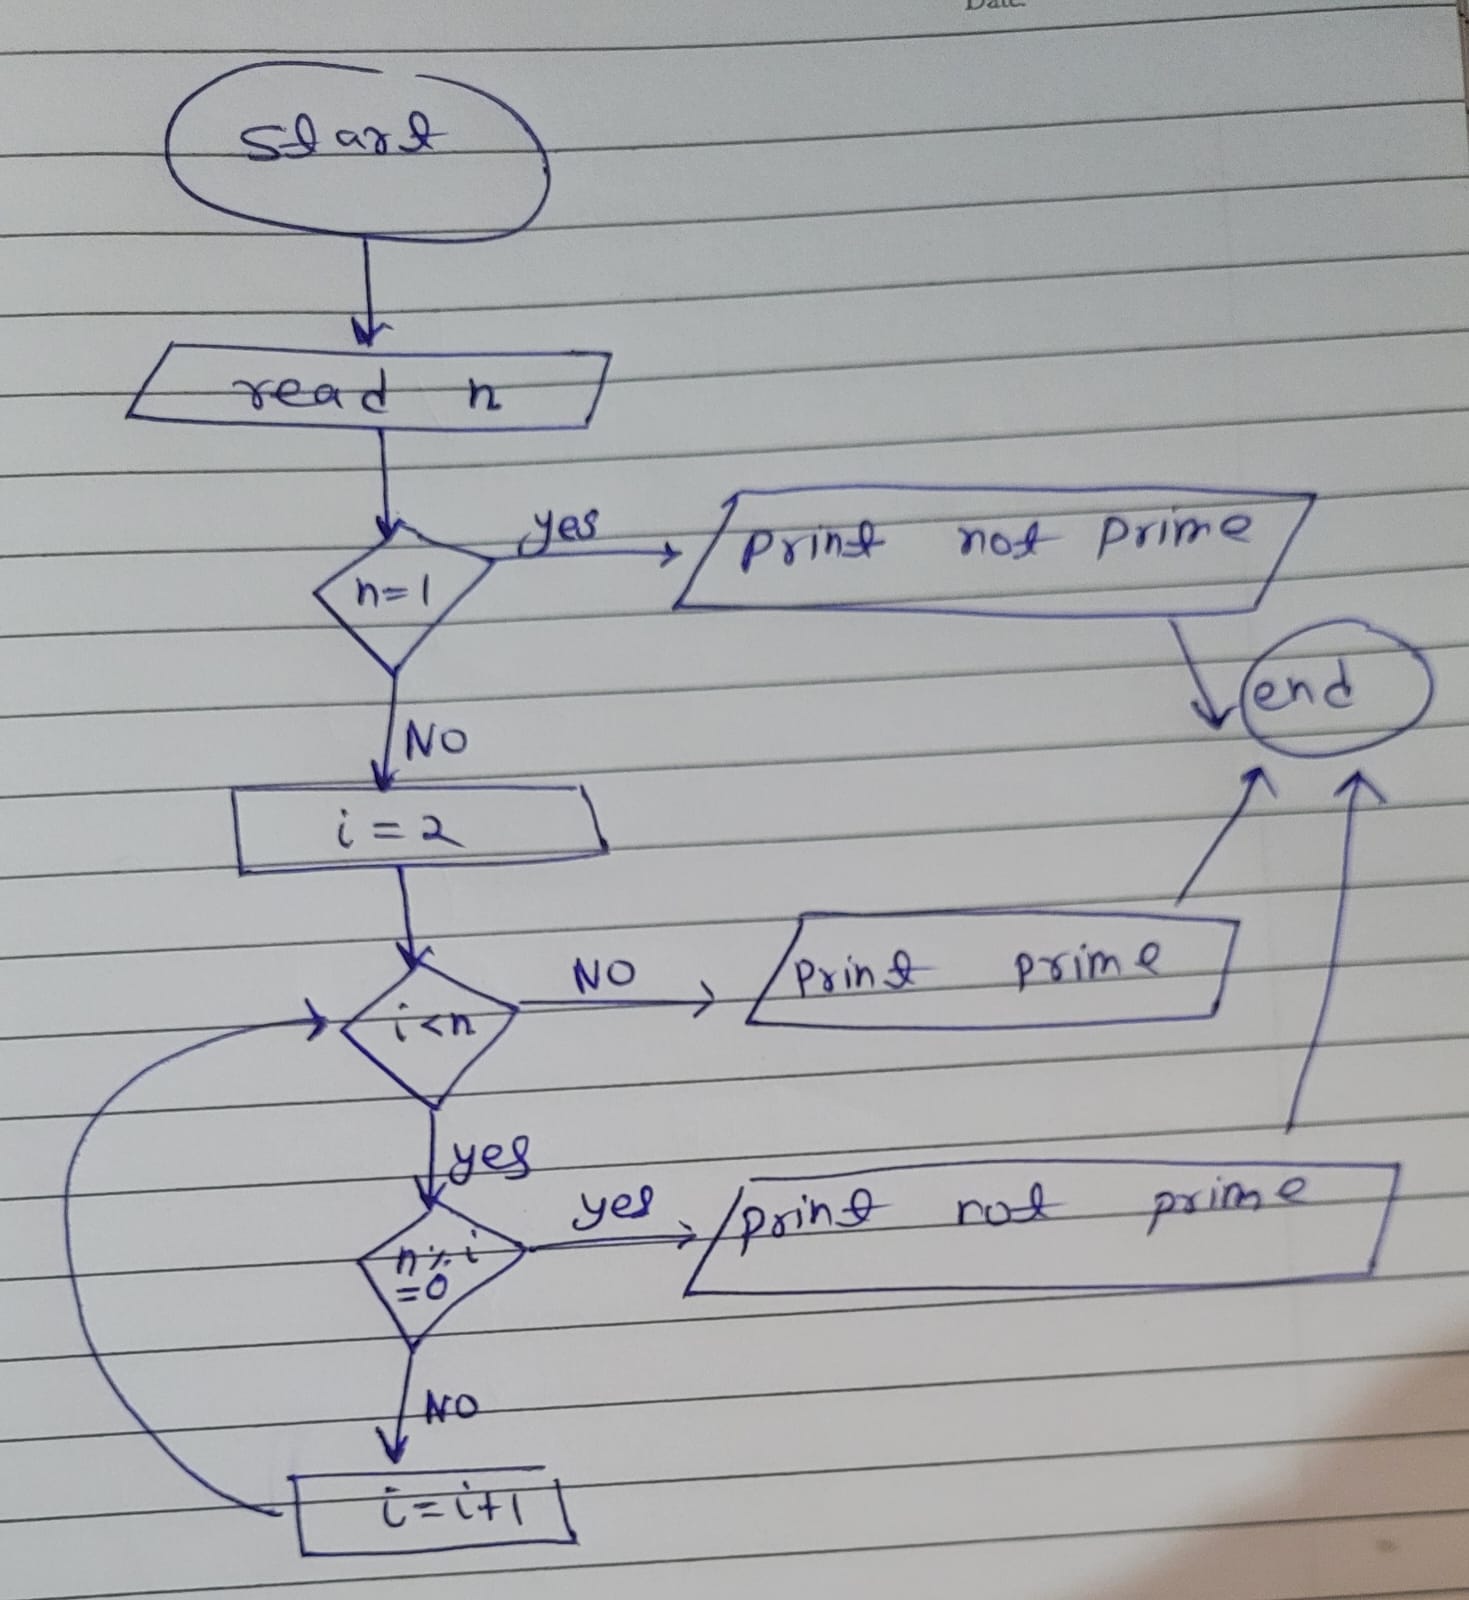 Date.
start
read n
n=1
yes
print not prime
end
NO
i = 2
i<n
NO
print prime
yes
n%i
=0
yes
print not prime
NO
i=i+1